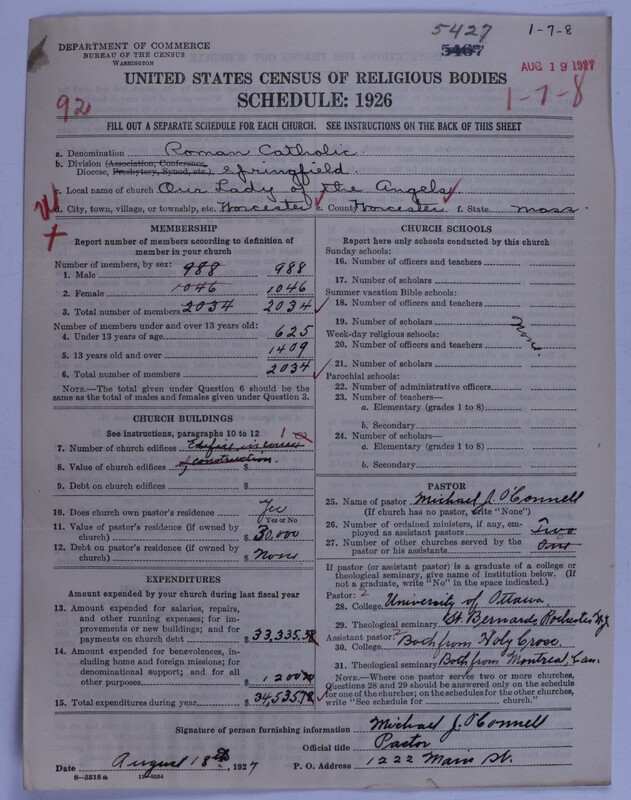 5427
5467
1-7-8
DEPARTMENT OF COMMERCE
BUREAU OF THE CENSUS
WASHINGTON
AUG 19 1927
UNITED STATES CENSUS OF RELIGIOUS BODIES
SCHEDULE: 1926
92
1-7-8
FILL OUT A SEPARATE SCHEDULE FOR EACH CHURCH. SEE INSTRUCTIONS ON THE BACK OF THIS SHEET
a. Denomination Roman Catholic
b. Division (Association, Conference,
Diocese, Presbytery, Synod, etc.) Springfield.
c. Local name of church Our Lady of the Angels
d. City, town, village, or township, etc. Worcester e. County Worcester f. State Mass.
MEMBERSHIP
Report number of members according to definition of
member in your church
Number of members, by sex:
1. Male 988 988
2. Female 1046 1046
3. Total number of members 2034 2034
Number of members under and over 13 years old:
4. Under 13 years of age 625
5. 13 years old and over 1409
6. Total number of members 2034
NOTE.—The total given under Question 6 should be the
same as the total of males and females given under Question 3.
CHURCH BUILDINGS
See instructions, paragraphs 10 to 12
7. Number of church edifices Edifice in course 1
8. Value of church edifices of construction. $
9. Debt on church edifices $
10. Does church own pastor's residence Yes
Yes or No
11. Value of pastor's residence (if owned by
church) $ 30,000
12. Debt on pastor's residence (if owned by
church) $ None
EXPENDITURES
Amount expended by your church during last fiscal year
13. Amount expended for salaries, repairs,
and other running expenses; for im-
provements or new buildings; and for
payments on church debt $ 33,335.58
14. Amount expended for benevolences, in-
cluding home and foreign missions; for
denominational support; and for all
other purposes $ 1200
15. Total expenditures during year $ 34,535.58
CHURCH SCHOOLS
Report here only schools conducted by this church
Sunday schools:
16. Number of officers and teachers
17. Number of scholars
Summer vacation Bible schools:
18. Number of officers and teachers
19. Number of scholars
None
Week-day religious schools:
20. Number of officers and teachers
21. Number of scholars
Parochial schools:
22. Number of administrative officers
23. Number of teachers—
a. Elementary (grades 1 to 8)
b. Secondary
24. Number of scholars—
a. Elementary (grades 1 to 8)
b. Secondary
PASTOR
25. Name of pastor Michael J. O'Connell
(If church has no pastor, write "None")
26. Number of ordained ministers, if any, em-
ployed as assistant pastors Two
27. Number of other churches served by the
pastor or his assistants One
If pastor (or assistant pastor) is a graduate of a college or
theological seminary, give name of institution below. (If
not a graduate, write "No" in the space indicated.)
Pastor: 2
28. College University of Ottawa.
29. Theological seminary St. Bernards Rochester N.Y.
Assistant pastor: 2
30. College Both from Holy Cross.
31. Theological seminary Both from Montreal, Can.
NOTE.—Where one pastor serves two or more churches,
Questions 28 and 29 should be answered only on the schedule
for one of the churches; on the schedules for the other churches,
write "See schedule for church."
Signature of person furnishing information Michael J. O'Connell
Official title Pastor
Date August 18th, 1927 P. O. Address 1222 Main St.
8—5518a 11—9054